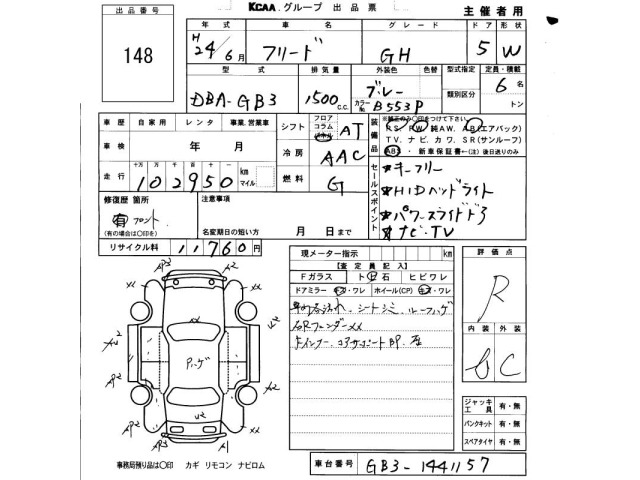 KCAA.グループ 出品票 主催者用
出品番号
148
年式 車名 グレード ドア 形状
H24/6月 フリード GH 5 W
型式 排気量 外装色 色替 型式指定 定員・積載
類別区分
DBA-GB3 1500c.c. ブルー カラーNo. B553P 6名 トン
車歴 自家用 レンタ 事業、営業車
シフト フロア コラム AT
装備品
RS. PW 純AW. AB(エアバック)
TV. ナビ. カワ. SR(サンルーフ)
ABS・新車保証書(有)後日送りのみ
車検 年 月
冷房 AAC
走行 十万 万 千 百 十 km マイル
102950
燃料 G
セールスポイント
★キーフリー
★HIDヘッドライト
★パワースライドドア
★ナビ・TV
修復歴 箇所
有 フロント
(有の場合は〇印を)
注意事項
名変期日の短い方 月 日まで
リサイクル料 11760円
現メーター指示 km
【査定員記入】
Fガラス ト 石 ヒビワレ
ドアミラー キズ・ワレ ホイール(CP) キズ・ワレ
車内汚れ、シートシミ、ルーフハゲ
右RフェンダーXX
評価点
R
内装 外装
C
ジャッキ工具 有・無
パンクキット 有・無
スペアタイヤ 有・無
AP3 A2
A2
Pハゲ
AP2 A2
U2
XX XX
AP1 A1
事務局預り品は〇印 カギ リモコン ナビロム
車台番号 GB3-1441157